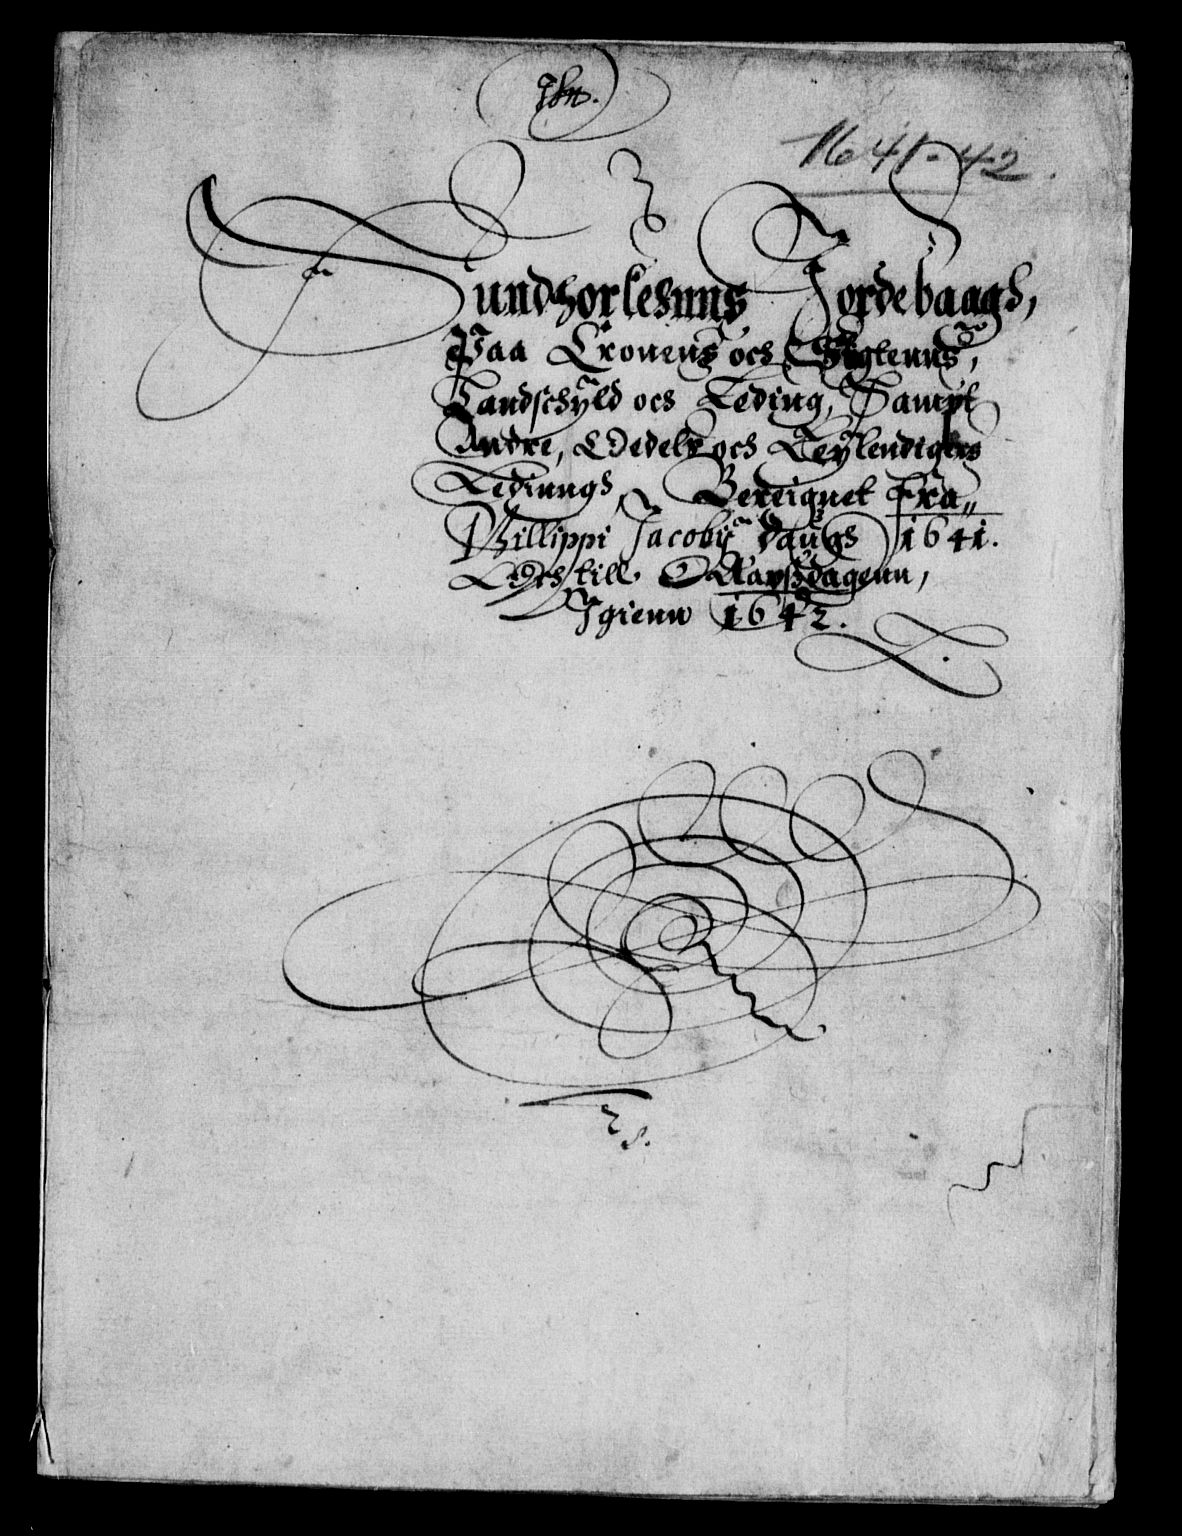 1641-42.
Sundhorlehnns Jordebaagh,
Paa Cronens och Stigtenns,
Landschyld och Leding, Sampt
Andre, Oedels och Leylendighs
Ledinngh, Bereignet fra
Phillippi Jacobij daugh 1641.
Och till Olaysdagenn,
Igienn 1642.